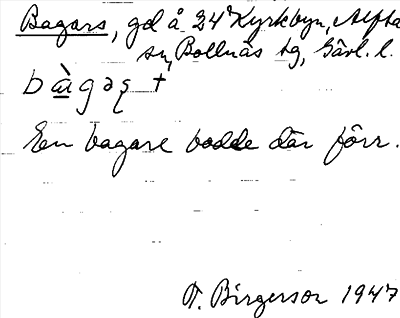 Bagars, gd å 24 Kyrkbyn, Alfta
sn, Bollnäs tg, Gävl. l.
bàgaʂ +
En bagare bodde där förr.
F. Birgerson 1947